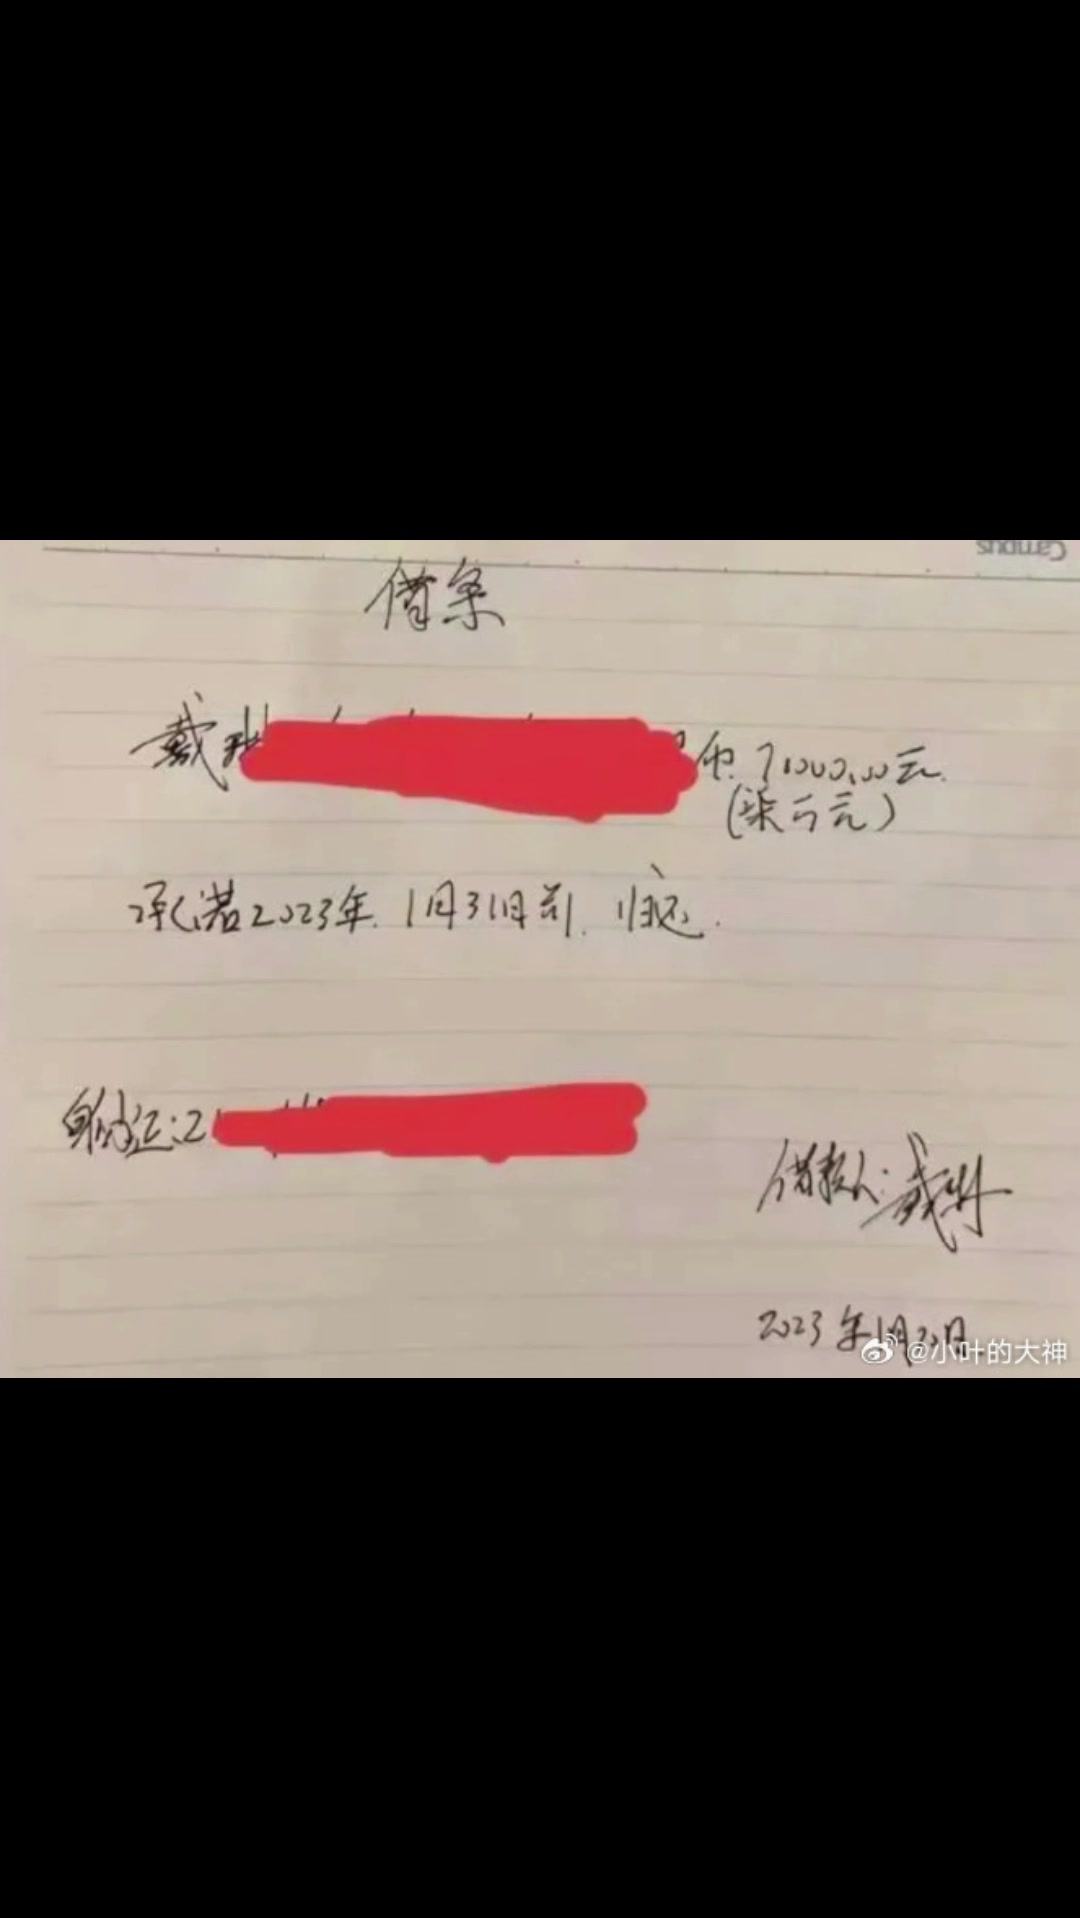 Campus
借条
戴 币 7000.00元.
(柒仟元)
承诺2023年.1月31日前.归还.
身份证:2
借款人:戴琳
2023年1月20日
@小叶的大神